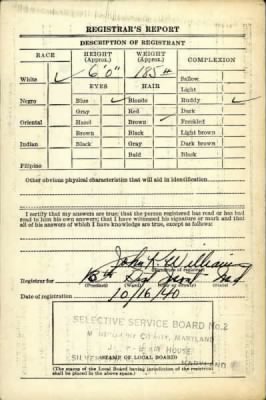 REGISTRAR'S REPORT
DESCRIPTION OF REGISTRANT
RACE HEIGHT (Approx.) WEIGHT (Approx.) COMPLEXION
6' 0" 185 #
White ✓ EYES HAIR Sallow
Light
Negro Blue ✓ Blonde Ruddy ✓
Gray Red Dark
Oriental Hazel Brown ✓ Freckled
Brown Black Light brown
Indian Black Gray Dark brown
Bald Black
Filipino
Other obvious physical characteristics that will aid in identification
I certify that my answers are true; that the person registered has read or has had
read to him his own answers; that I have witnessed his signature or mark and
that all of his answers of which I have knowledge are true, except as follows:
John K. Williams
(Signature of registrar)
Registrar for 13th
(Precinct) (Ward) (City or county) (State)
Date of registration 10/16/40
SELECTIVE SERVICE BOARD No. 2
MARYLAND
HOUSE
MARYLAND
(STAMP OF LOCAL BOARD)
(The stamp of the Local Board having jurisdiction of the registrant
shall be placed in the above space.)